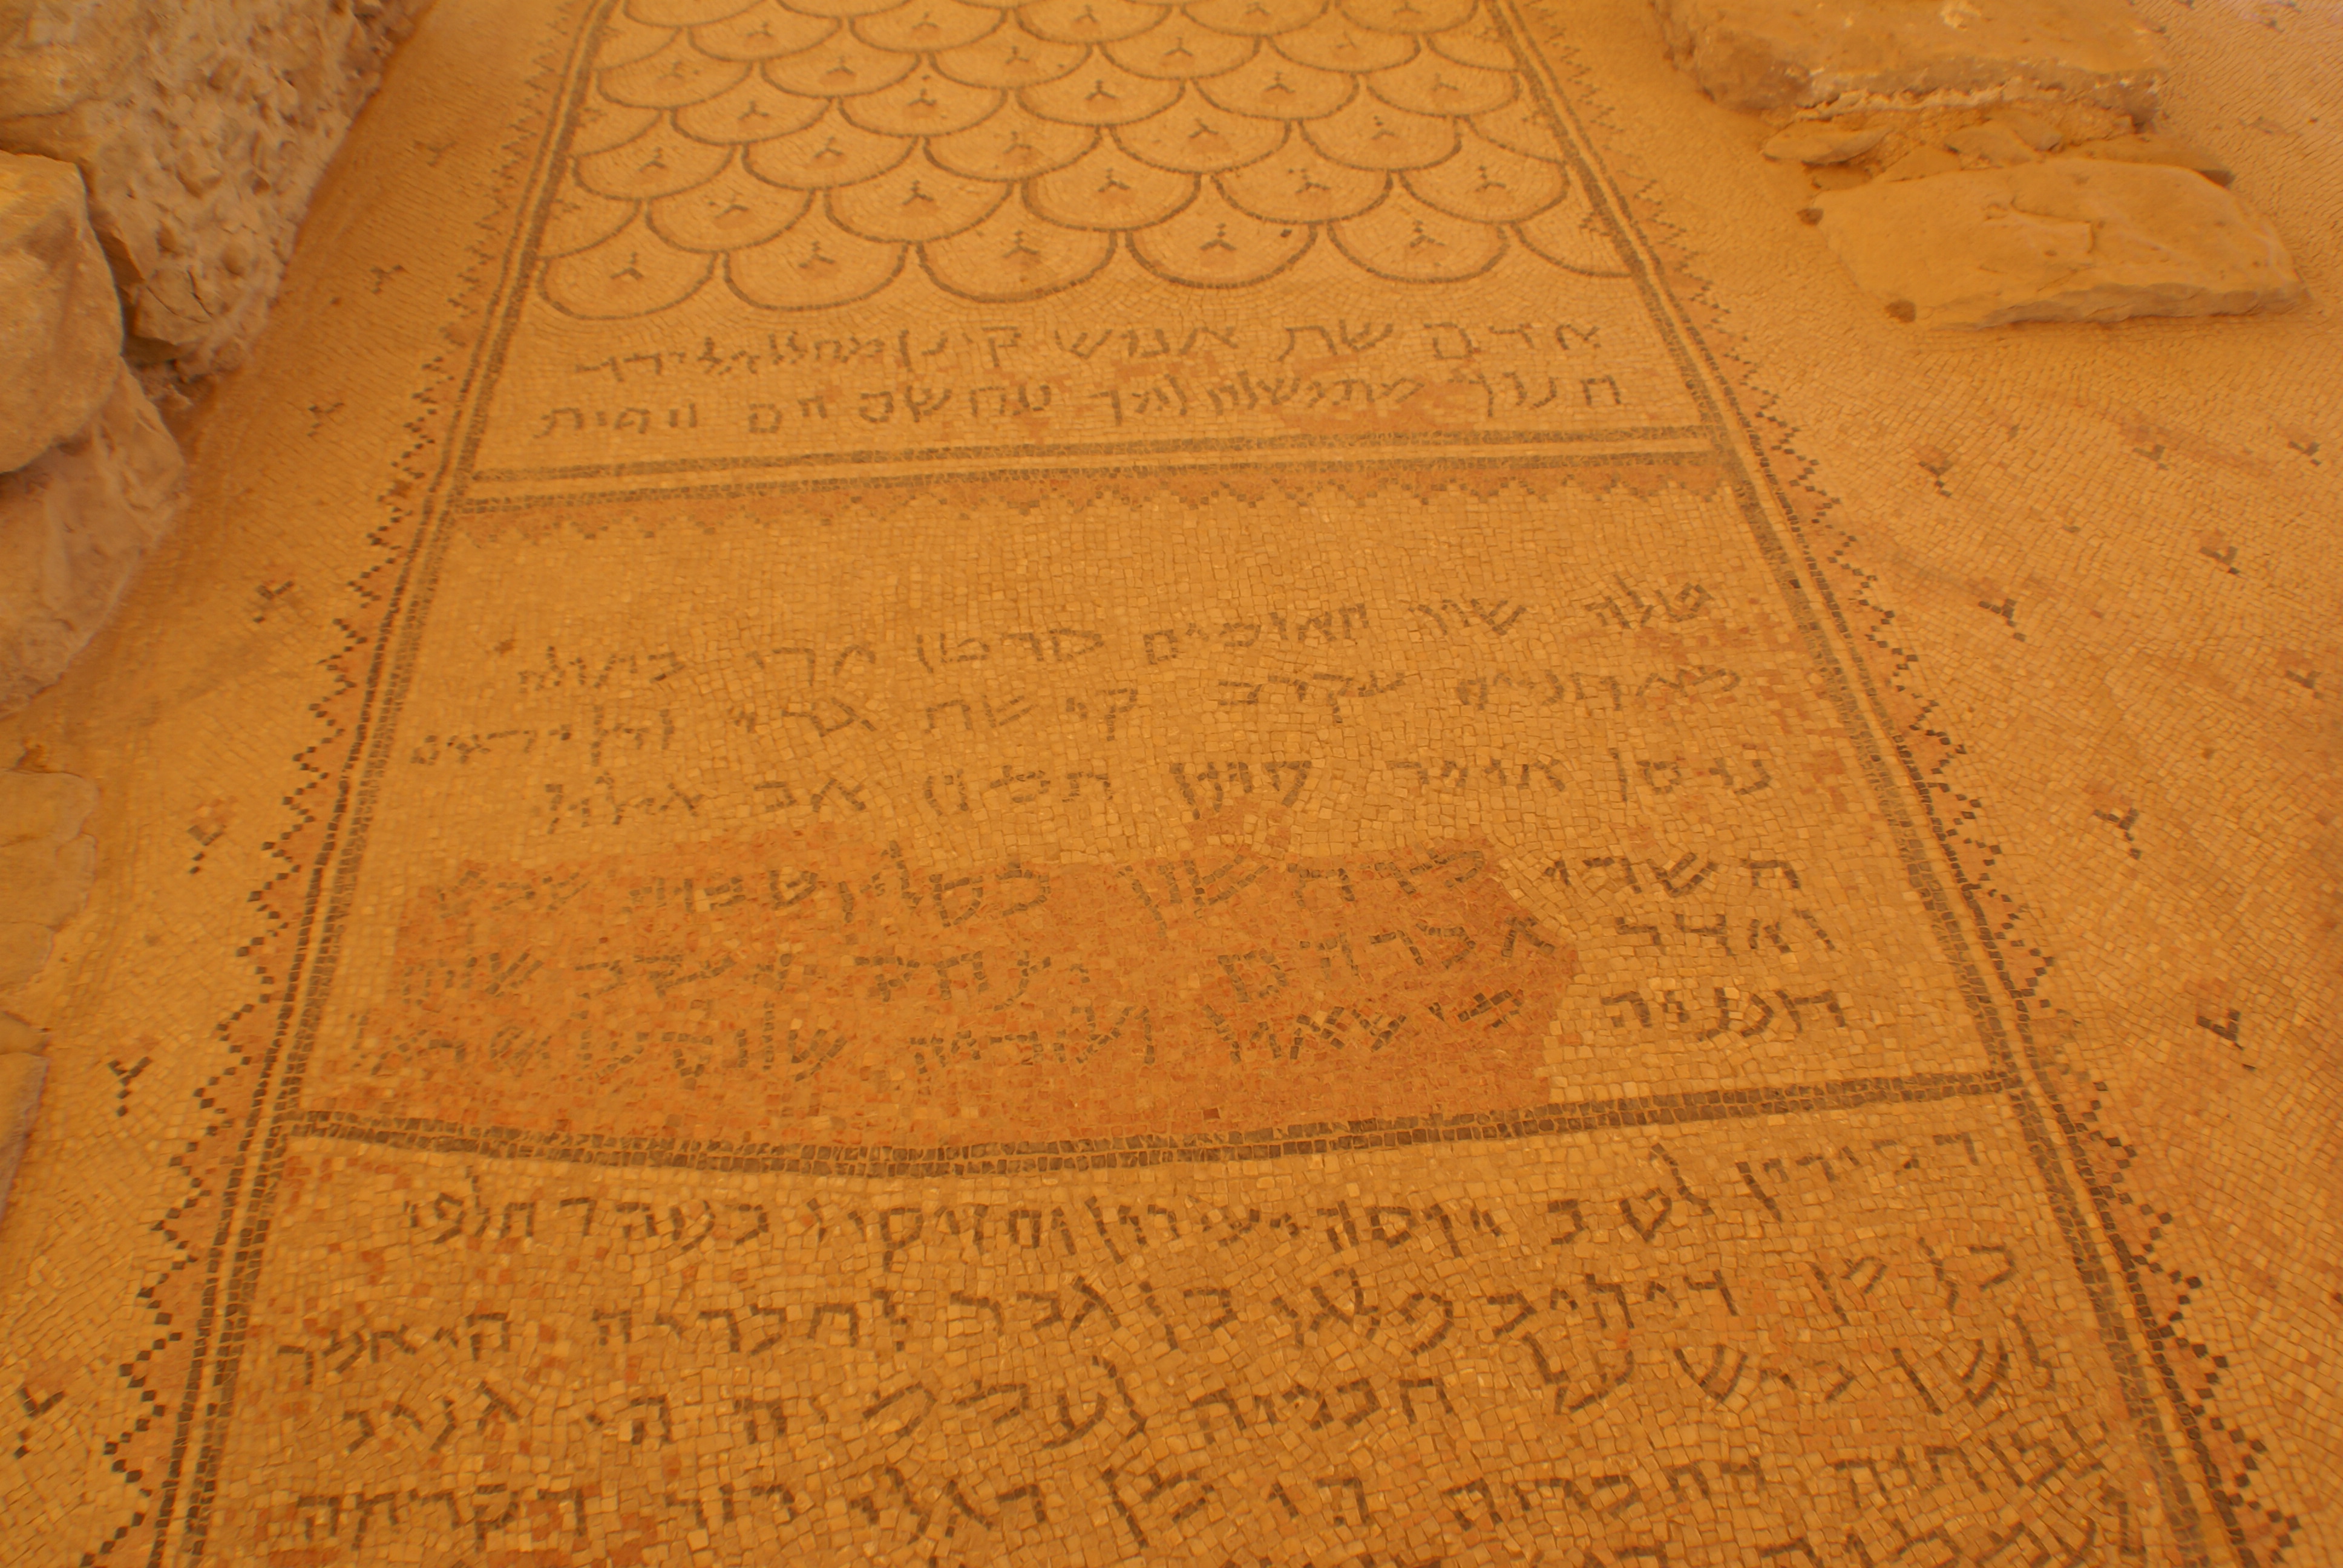 אדם שת אנוש קינן מהללאל ירד
חנוך מתושלח למך נח שם חם ויפת
טלה שור תאומים סרטן ארי בתולה
מאזנים עקרב קשת גדי ודלי דגים
ניסן אייר סיון תמוז אב אילול
תשרי מרחשון כסליו טבית שבט
ואדר אברהם יצחק יעקב שלום
חנניה מישאיל ועזריה שלום על ישראל
דכירין לטב יוסה ועירון וחזיקיו בנוה דחלפי
כל מן דיהיב פלגו בן גבר לחבריה הי אמר
לשן ביש על חבריה לעממיה הי גניב
צבותיה דחבריה הי מן דגלי רזה דקרתה